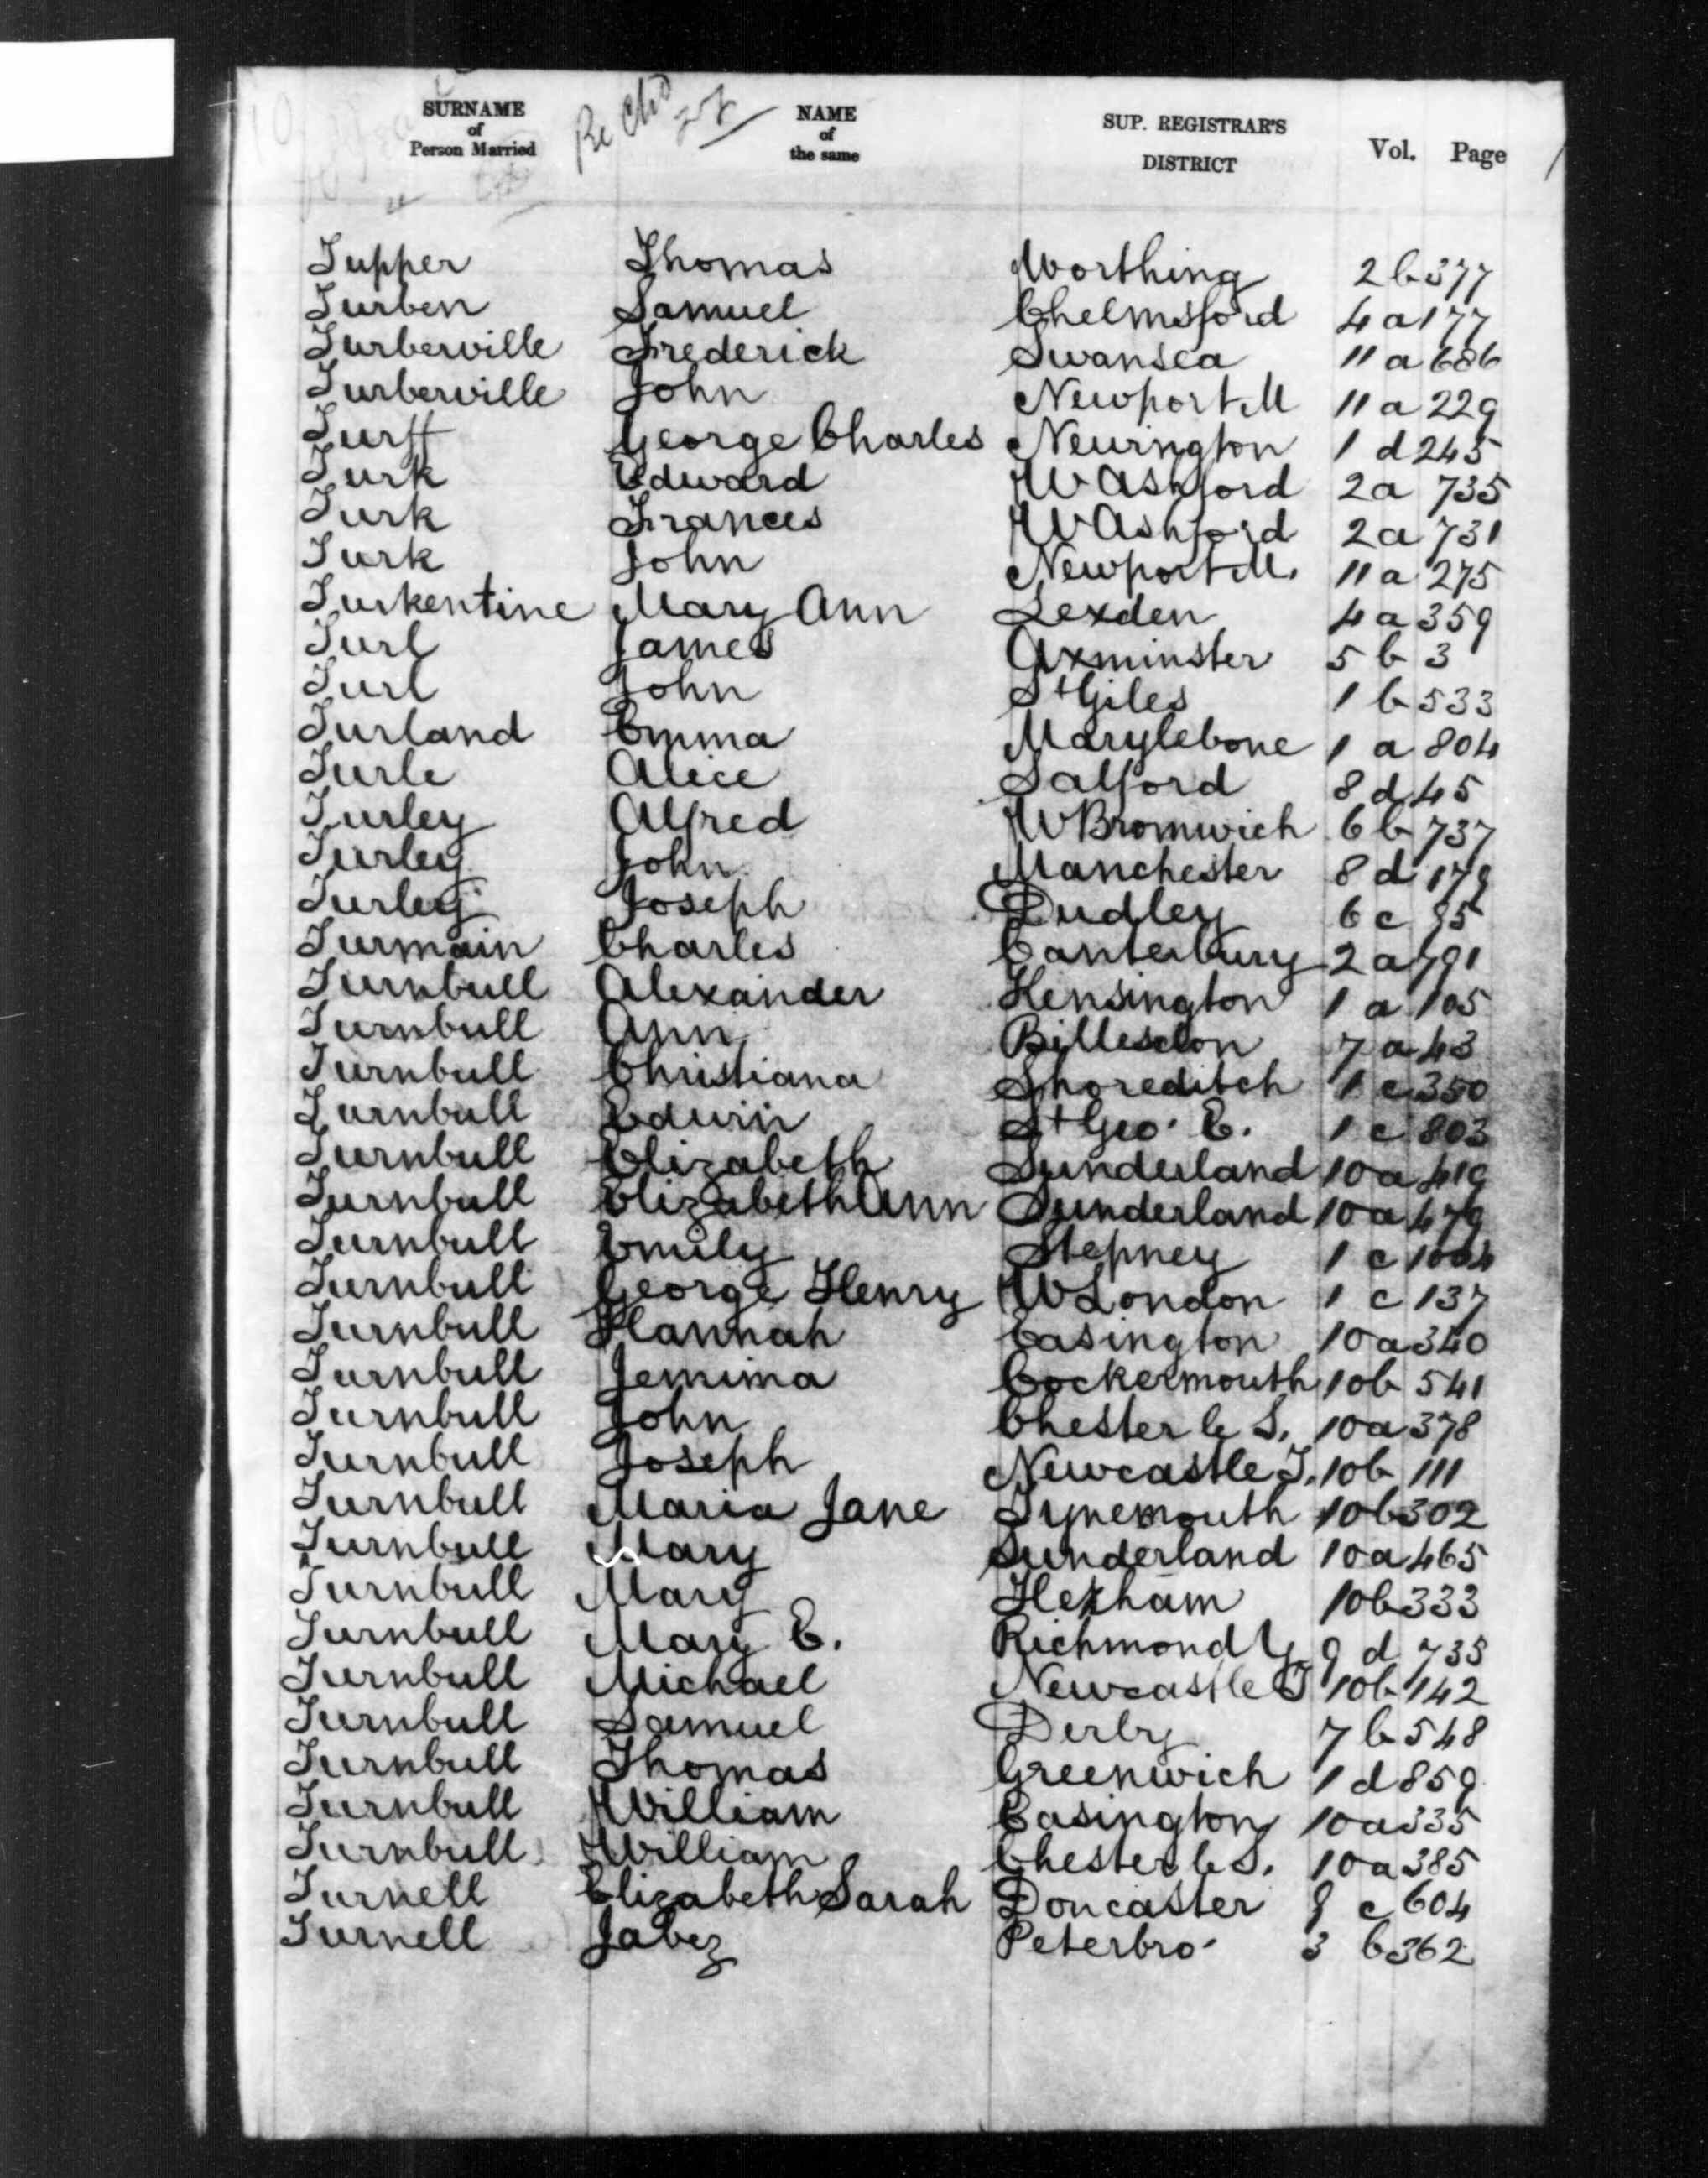 SURNAME of Person Married NAME of the same SUP. REGISTRAR'S DISTRICT Vol. Page
Tupper Thomas Worthing 2 b 377
Turben Samuel Chelmsford 4 a 177
Turberville Frederick Swansea 11 a 686
Turberville John Newport M 11 a 229
Turff George Charles Newington 1 d 245
Turk Edward W Ashford 2a 735
Turk Frances W Ashford 2a 731
Turk John Newport M. 11 a 275
Turkentine Mary Ann Lexden 4 a 359
Turl James Axminster 5 b 3
Turl John St Giles 1 b 533
Turland Emma Marylebone 1 a 804
Turle Alice Salford 8 d 45
Turley Alfred W Bromwich 6 b 737
Turley John Manchester 8 d 179
Turley Joseph Dudley 6 c 95
Turmain Charles Canterbury 2 a 791
Turnbull Alexander Kensington 1 a 105
Turnbull Ann Billesdon 7 a 43
Turnbull Christiana Shoreditch 1 c 350
Turnbull Edwin St Geo. E. 1 c 803
Turnbull Elizabeth Sunderland 10 a 419
Turnbull Elizabeth Ann Sunderland 10 a 479
Turnbull Emily Stepney 1 c 1004
Turnbull George Henry W London 1 c 137
Turnbull Hannah Easington 10 a 340
Turnbull Jemima Cockermouth 10b 541
Turnbull John Chester le S. 10a 378
Turnbull Joseph Newcastle T. 10b 111
Turnbull Maria Jane Tynemouth 10b 302
Turnbull Mary Sunderland 10a 465
Turnbull Mary Hexham 10b 333
Turnbull Mary E. Richmond Y. 9 d 735
Turnbull Michael Newcastle T 10b 142
Turnbull Samuel Derby 7 b 548
Turnbull Thomas Greenwich 1 d 859
Turnbull William Easington 10a 335
Turnbull William Chester le S. 10a 385
Turnell Elizabeth Sarah Doncaster 9 c 604
Turnell Jabez Peterbro' 3 b 362